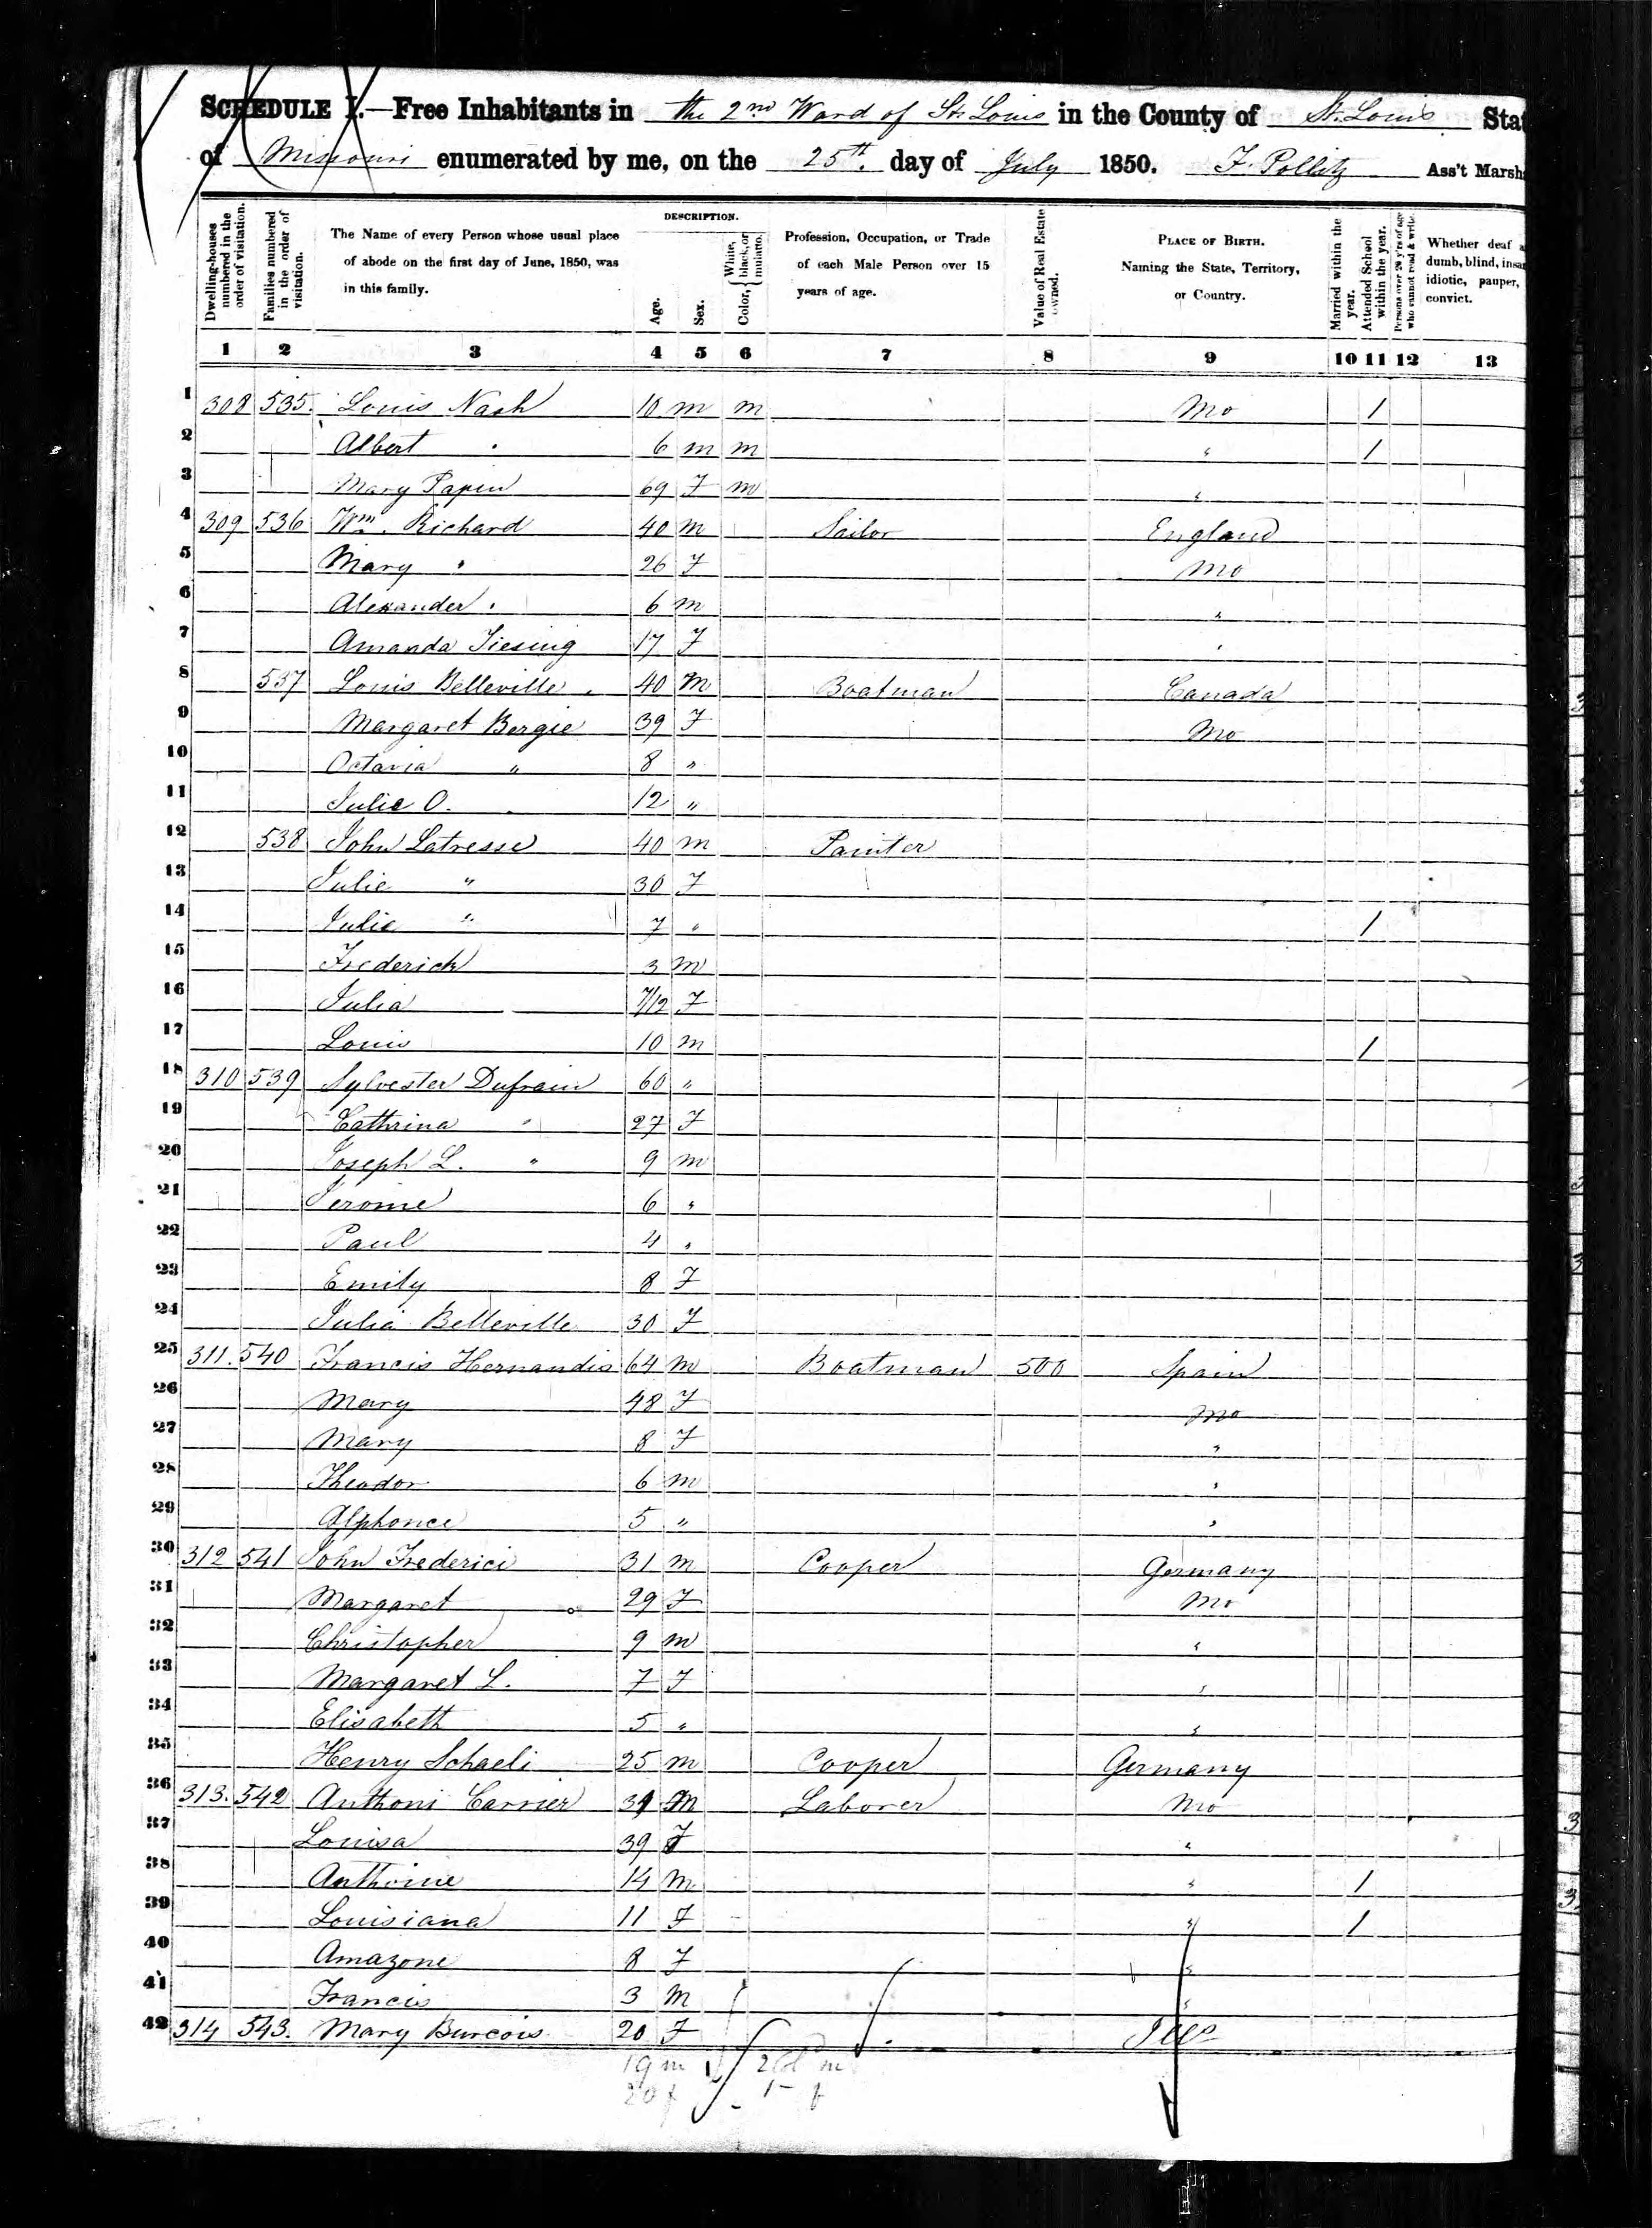 SCHEDULE I.—Free Inhabitants in the 2nd Ward of St. Louis in the County of St. Louis Stat
of Missouri enumerated by me, on the 25th. day of July 1850. F. Pollitz Ass't Marsh
Dwelling-houses numbered in the order of visitation.
Families numbered in the order of visitation.
The Name of every Person whose usual place of abode on the first day of June, 1850, was in this family.
DESCRIPTION.
Age.
Sex.
Color, { White, black, or mulatto.
Profession, Occupation, or Trade of each Male Person over 15 years of age.
Value of Real Estate owned.
PLACE OF BIRTH. Naming the State, Territory, or Country.
Married within the year.
Attended School within the year.
Persons over 20 y'rs of age who cannot read & write.
Whether deaf a dumb, blind, insan idiotic, pauper, convict.
1 2 3 4 5 6 7 8 9 10 11 12 13
1 308 535. Louis Nash 10 m m Mo 1
2 Albert " 6 m m " 1
3 Mary Papin 69 F m "
4 309 536 Wm. Richard 40 m Sailor England
5 Mary " 26 F Mo
6 Alexander " 6 m "
7 Amanda Tiesing 17 F "
8 537 Louis Belleville 40 M Boatman Canada
9 Margaret Bergie 39 F Mo
10 Octavia " 8 "
11 Julie O. 12 "
12 538 John Latresse 40 m Painter
13 Julie " 30 F
14 Julie " 7 " 1
15 Frederick 3 m
16 Julia 7/12 F
17 Louis 10 m 1
18 310 539 Sylvester Dufrain 60 "
19 Cathrina " 27 F
20 Joseph L. " 9 m
21 Jerome 6 "
22 Paul 4 "
23 Emily 8 F
24 Julia Belleville 30 F
25 311. 540 Francis Hernandis 64 m Boatman 500 Spain
26 Mary 48 F Mo
27 Mary 8 F "
28 Theodor 6 m "
29 Alphonce 5 " "
30 312 541 John Frederici 31 m Cooper Germany
31 Margaret 29 F Mo
32 Christopher 9 m "
33 Margaret L. 7 F "
34 Elisabeth 5 " "
35 Henry Schaeli 25 m Cooper Germany
36 313. 542 Anthoni Carrier M Laborer Mo
37 Louisa 39 F "
38 Anthoine 14 M " 1
39 Louisiana 11 F " 1
40 Amazone 8 F "
41 Francis 3 M "
42 314 543. Mary Burcois 20 F Ills
19 m 2 m
20 f 1 f